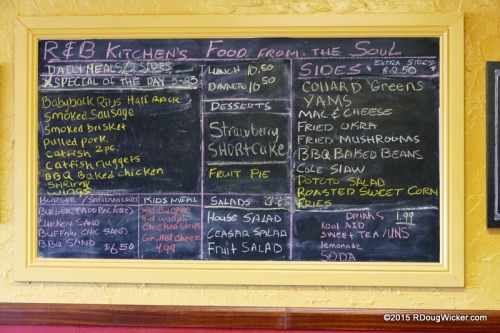 R&B KITCHEN'S FOOD FROM THE SOUL
DAILY MEALS/2 SIDES
SPECIAL OF THE DAY
Babyback Ribs Half Rack
Smoked Sausage
Smoked brisket
pulled pork
catfish 2pc.
catfish nuggets
BBQ Baked chicken
Shrimp
wings
BURGER / SANDWICHES
BURGER (ADD BACON)
CHICKEN SAND
BUFFALO CHIC SAND
BBQ SAND $6.50
KIDS MEAL
kid burger
kid wings
chicken strips
Grilled cheez
4.99
LUNCH 10.50
DINNER 10.50
DESSERTS
Strawberry
SHORTCAKE
FRUIT PIE
SALADS
HOUSE SALAD
CEASAR SALAD
Fruit SALAD
SIDES EXTRA SIDES
$2.50
COLLARD Greens
YAMS
MAC & CHEESE
FRIED OKRA
FRIED MUSHROOMS
BBQ BAKED BEANS
COLE SLAW
POTOTO SALAD
ROASTED SWEET CORN
FRIES
DRINKS 1.99
KOOL AID
SWEET TEA/UNS
lemonade
SODA
©2015 RDougWicker.com